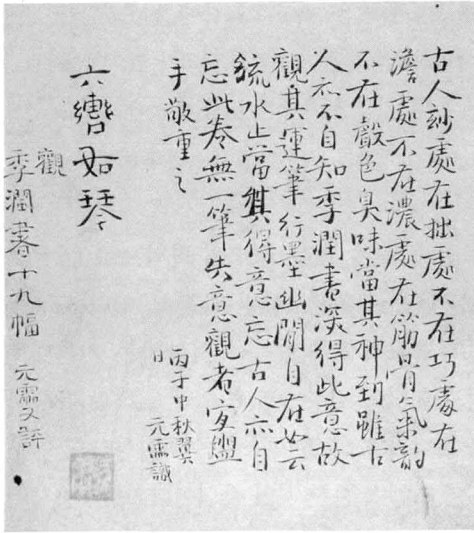 古人玅處在拙處不在巧處在
澹處不在濃處在筋骨氣韵
不在聲色臭味當其神到雖古
人亦不自知季潤書深得此意故
觀其運筆行墨幽閒自在如雲
流水止當其得意忘古人亦自
忘此卷無一筆失意觀者宜盥
手敬重之
丙子中秋翼
日 元霝識
六轡如琴
觀
季潤書十九幅 元霝又評